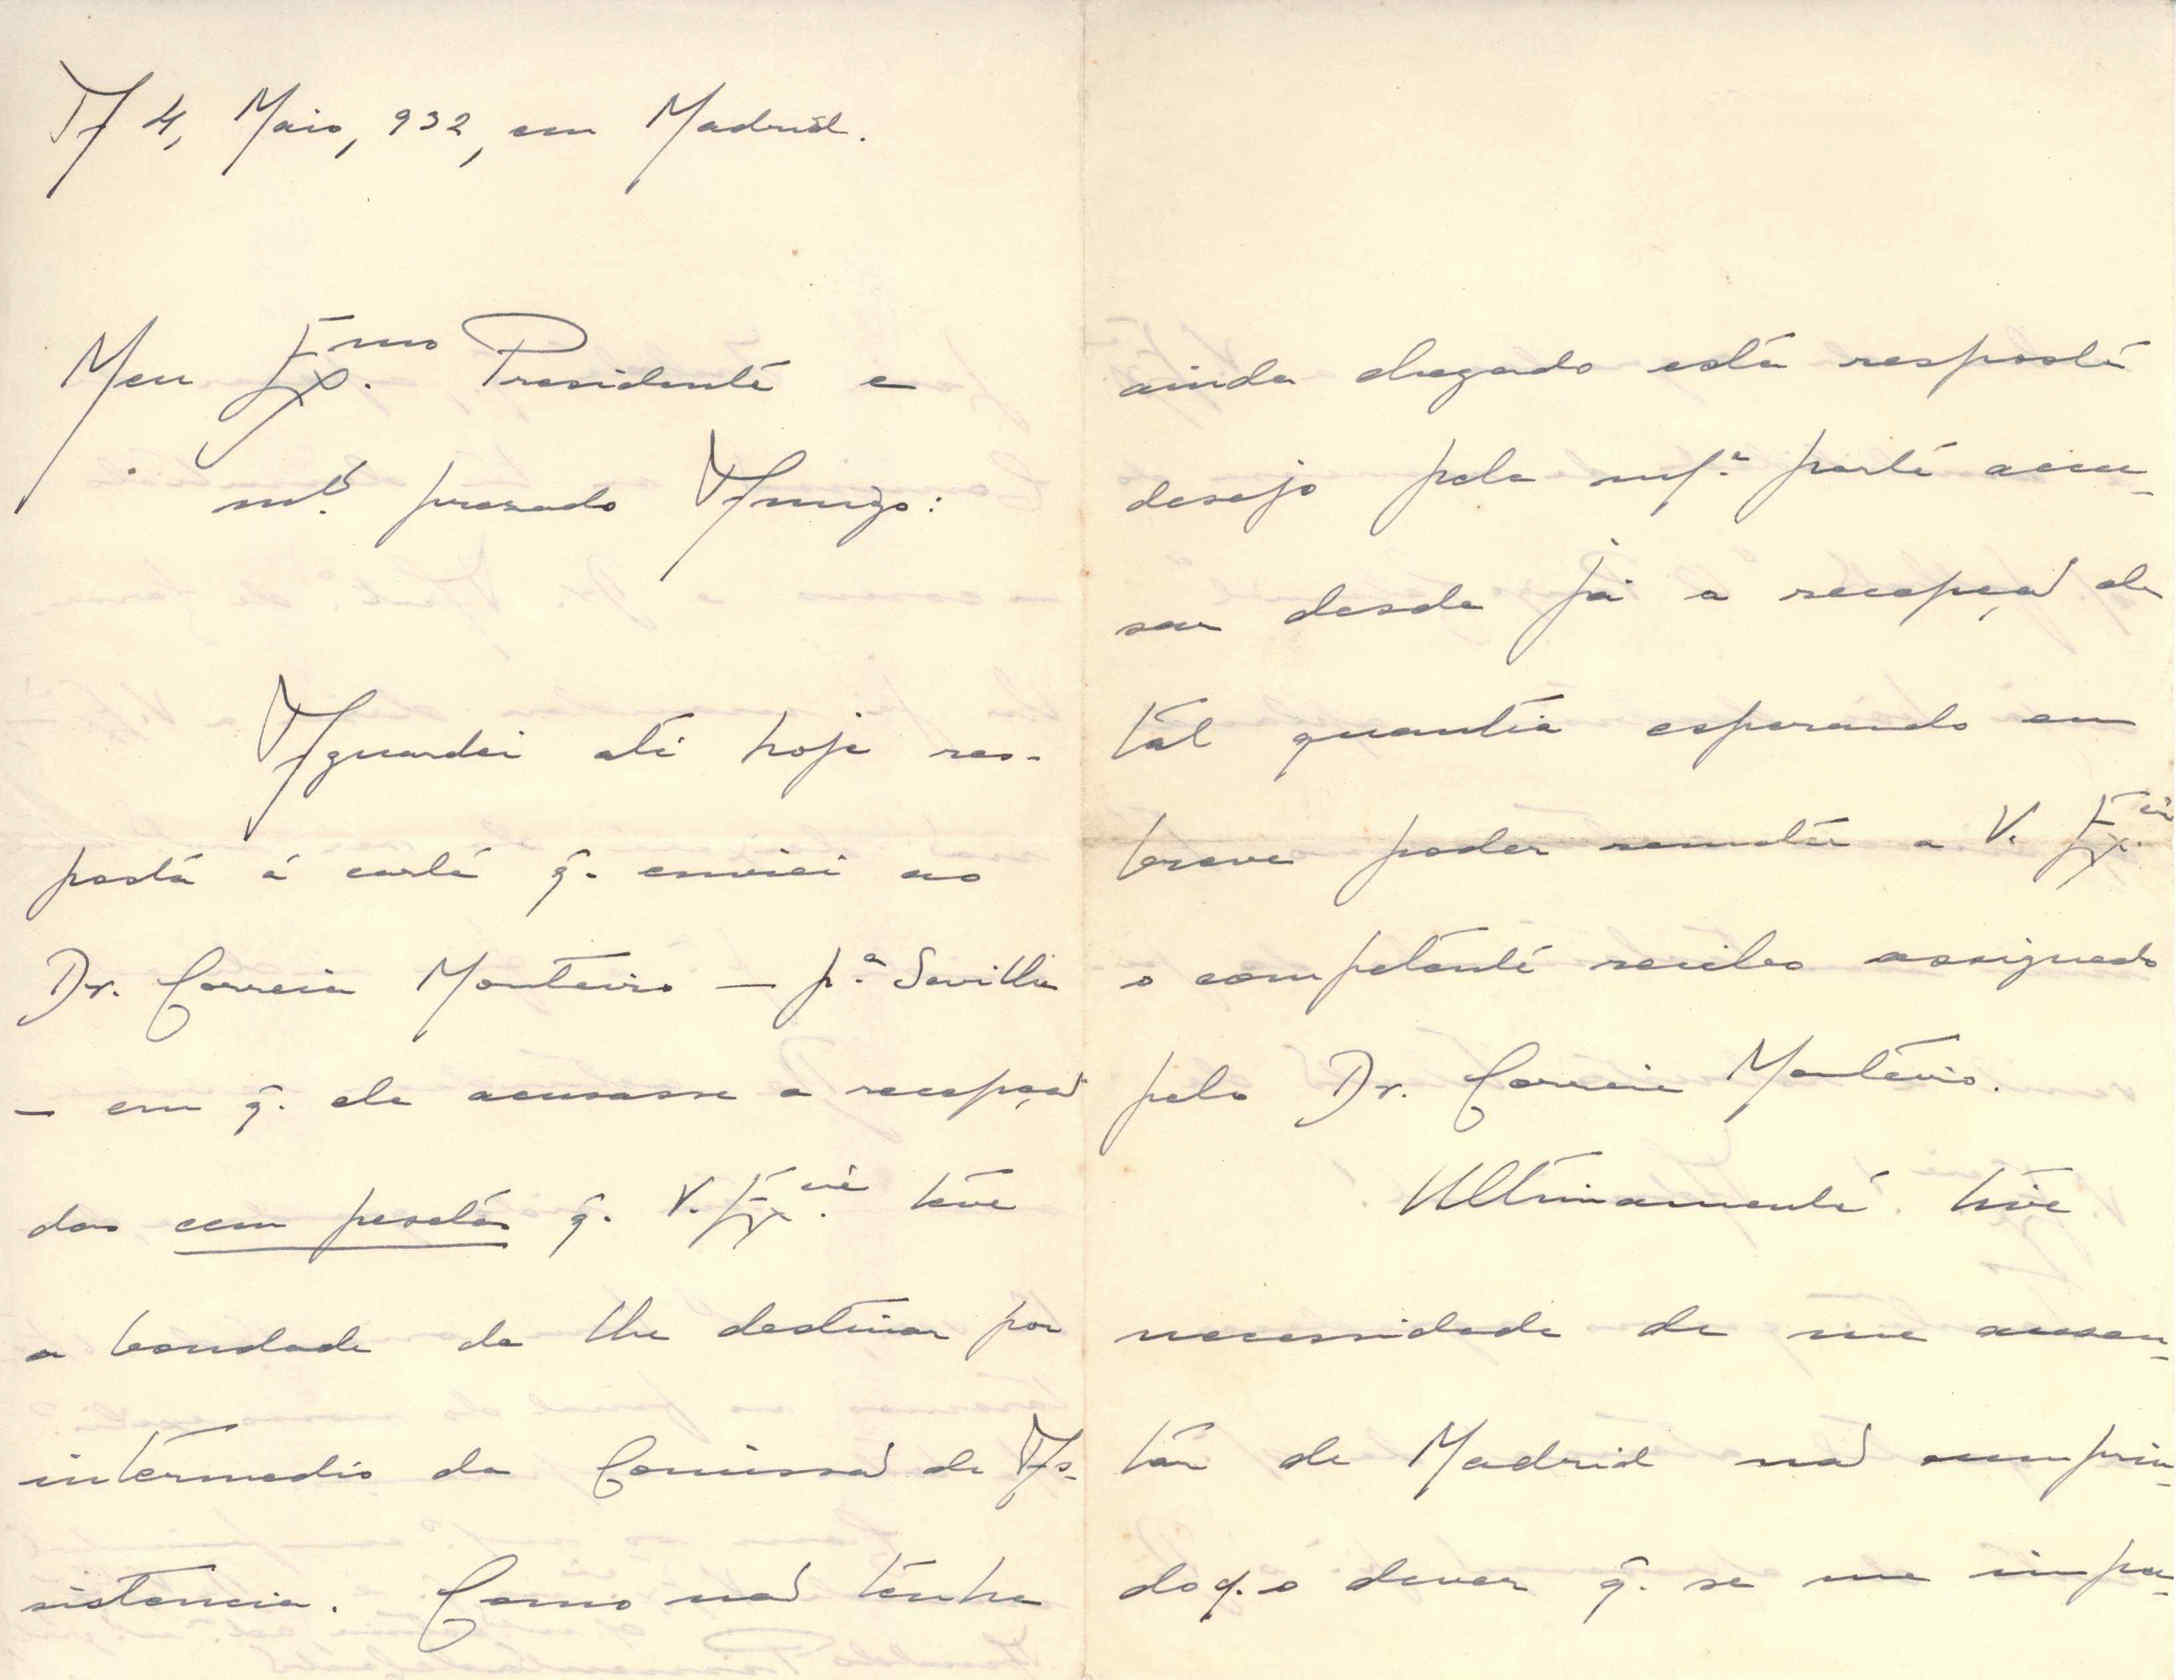 A 4, Maio, 932, em Madrid.
Meu Ex.mo Presidente e
mt.º prezado Amigo:
Aguardei até hoje res-
posta á carta q. enviei ao
Dr. Correia Monteiro — p.ª Sevilha
— em q. ele acusasse a recepção
das cem pesetas q. V. Ex.cia teve
a bondade de lhe destinar por
intermedio da Comissão de As-
sistencia. Como não tenha
ainda chegado esta resposta
desejo pela mª. parte acu-
sar desde já a recepção de
tal quantia esperando em
breve poder remeter a V. Ex.cia
o competente recibo assignado
pelo Dr. Correia Monteiro.
Ultimamente tive
necessidade de me ausen-
tar de Madrid não cumprin-
do q. o dever q. se me impu-